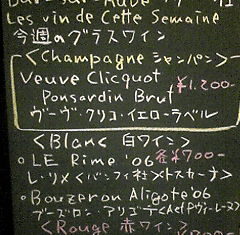 Les vin de Cette Semaine
今週のグラスワイン
<Champagne シャンパン>
Veuve Clicquot ¥1.200-
Ponsardin Brut
ヴーヴ・クリコ・イエローラベル
<Blanc 白ワイン>
○LE Rime '06 各¥700-
レ・リメ<バンフィ社><トスカーナ>
○Bouzeron Aligoté '06
ブーズロン・アリゴテ
<Rouge 赤ワイン>